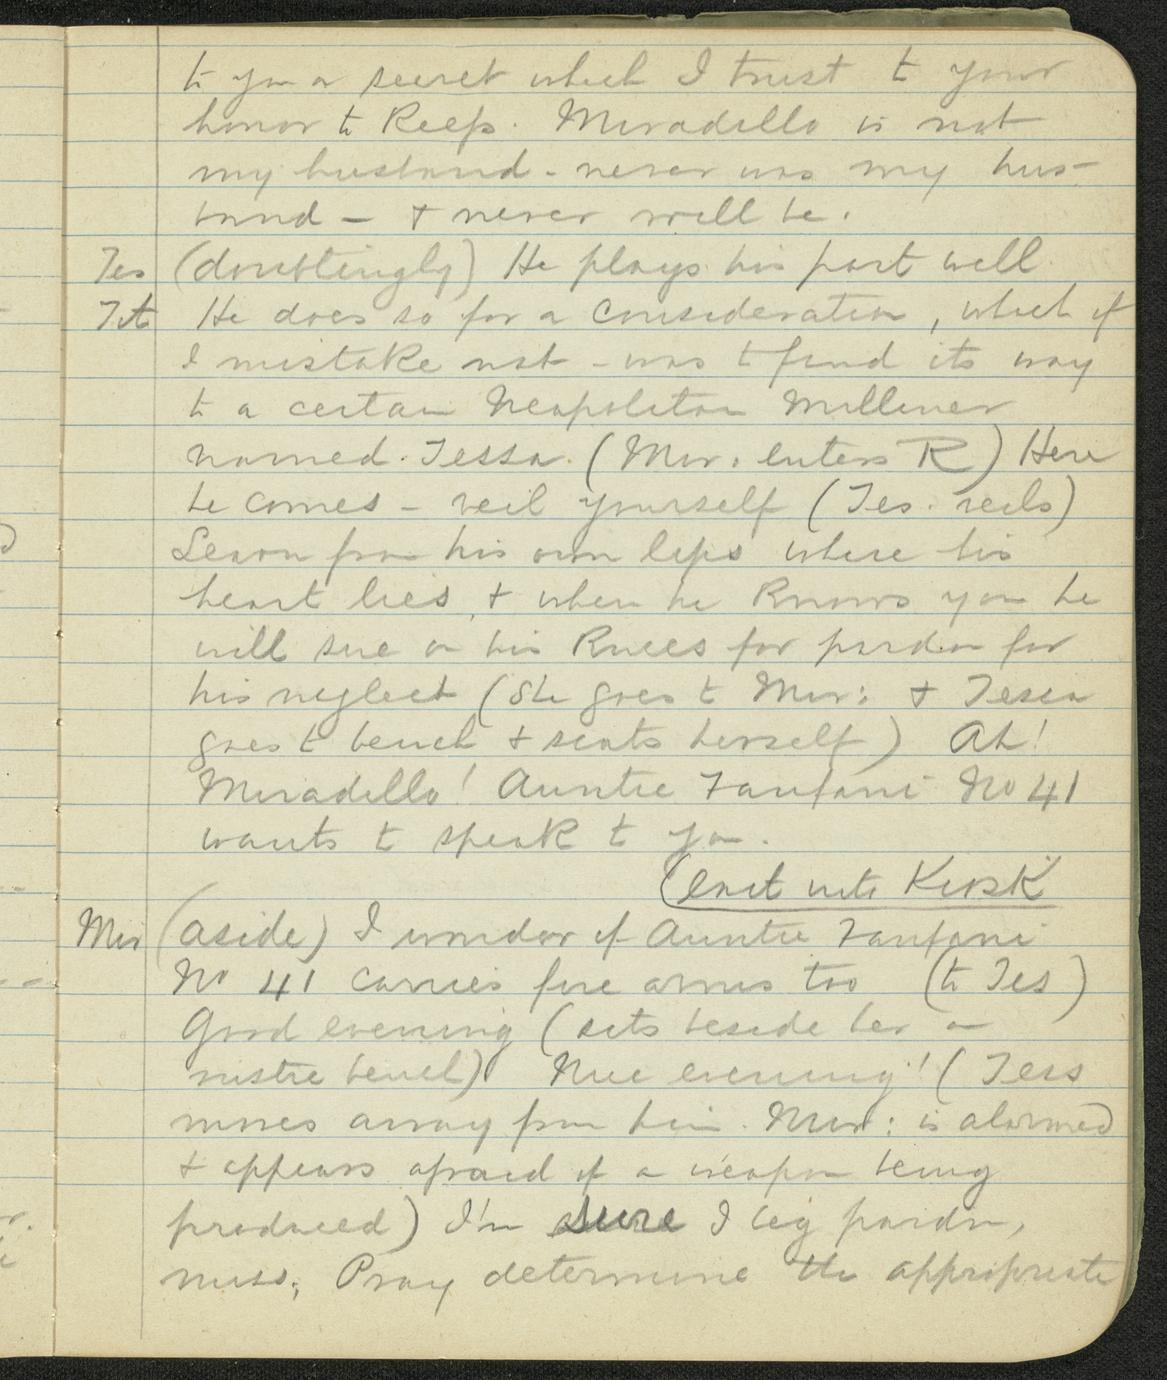 to you a secret which I trust to your
honor to keep. Miradillo is not
my husband - never was my hus-
band - & never will be.
Tes (doubtingly) He plays his part well
Tit He does so for a consideration, which if
I mistake not - was to find its way
to a certain Neapolitan Milliner
named Tessa. (Mir: enters R) Here
he comes - veil yourself (Tes. veils)
Learn from his own lips where his
heart lies, & when he knows you he
will sue on his knees for pardon for
his neglect (She goes to Mir: & Tessa
goes to bench & seats herself) Ah!
Miradillo! Auntie Fanfani No 41
wants to speak to you.
(exit into Kiosk
Mir (aside) I wonder if Auntie Fanfani
No 41 carries fire arms too (to Tes)
Good evening (sits beside her on
rustic bench) Nice evening! (Tess
moves away from him. Mir: is alarmed
& appears afraid of a weapon being
produced) I'm sure I beg pardon,
miss; Pray determine the appropriate